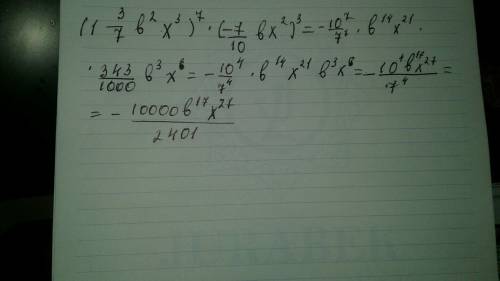 (1 3/7 в² x³)⁷ · (-7/10 вx²)³ = -10⁷/7⁷ · в¹⁴ x²¹ ·
· 343/1000 в³ x⁶ = - 10⁴/7⁴ · в¹⁴ x²¹ в³ x⁶ = - 10⁴ в¹⁷ x²⁷/7⁴ =
= - 10000 в¹⁷ x²⁷/2401